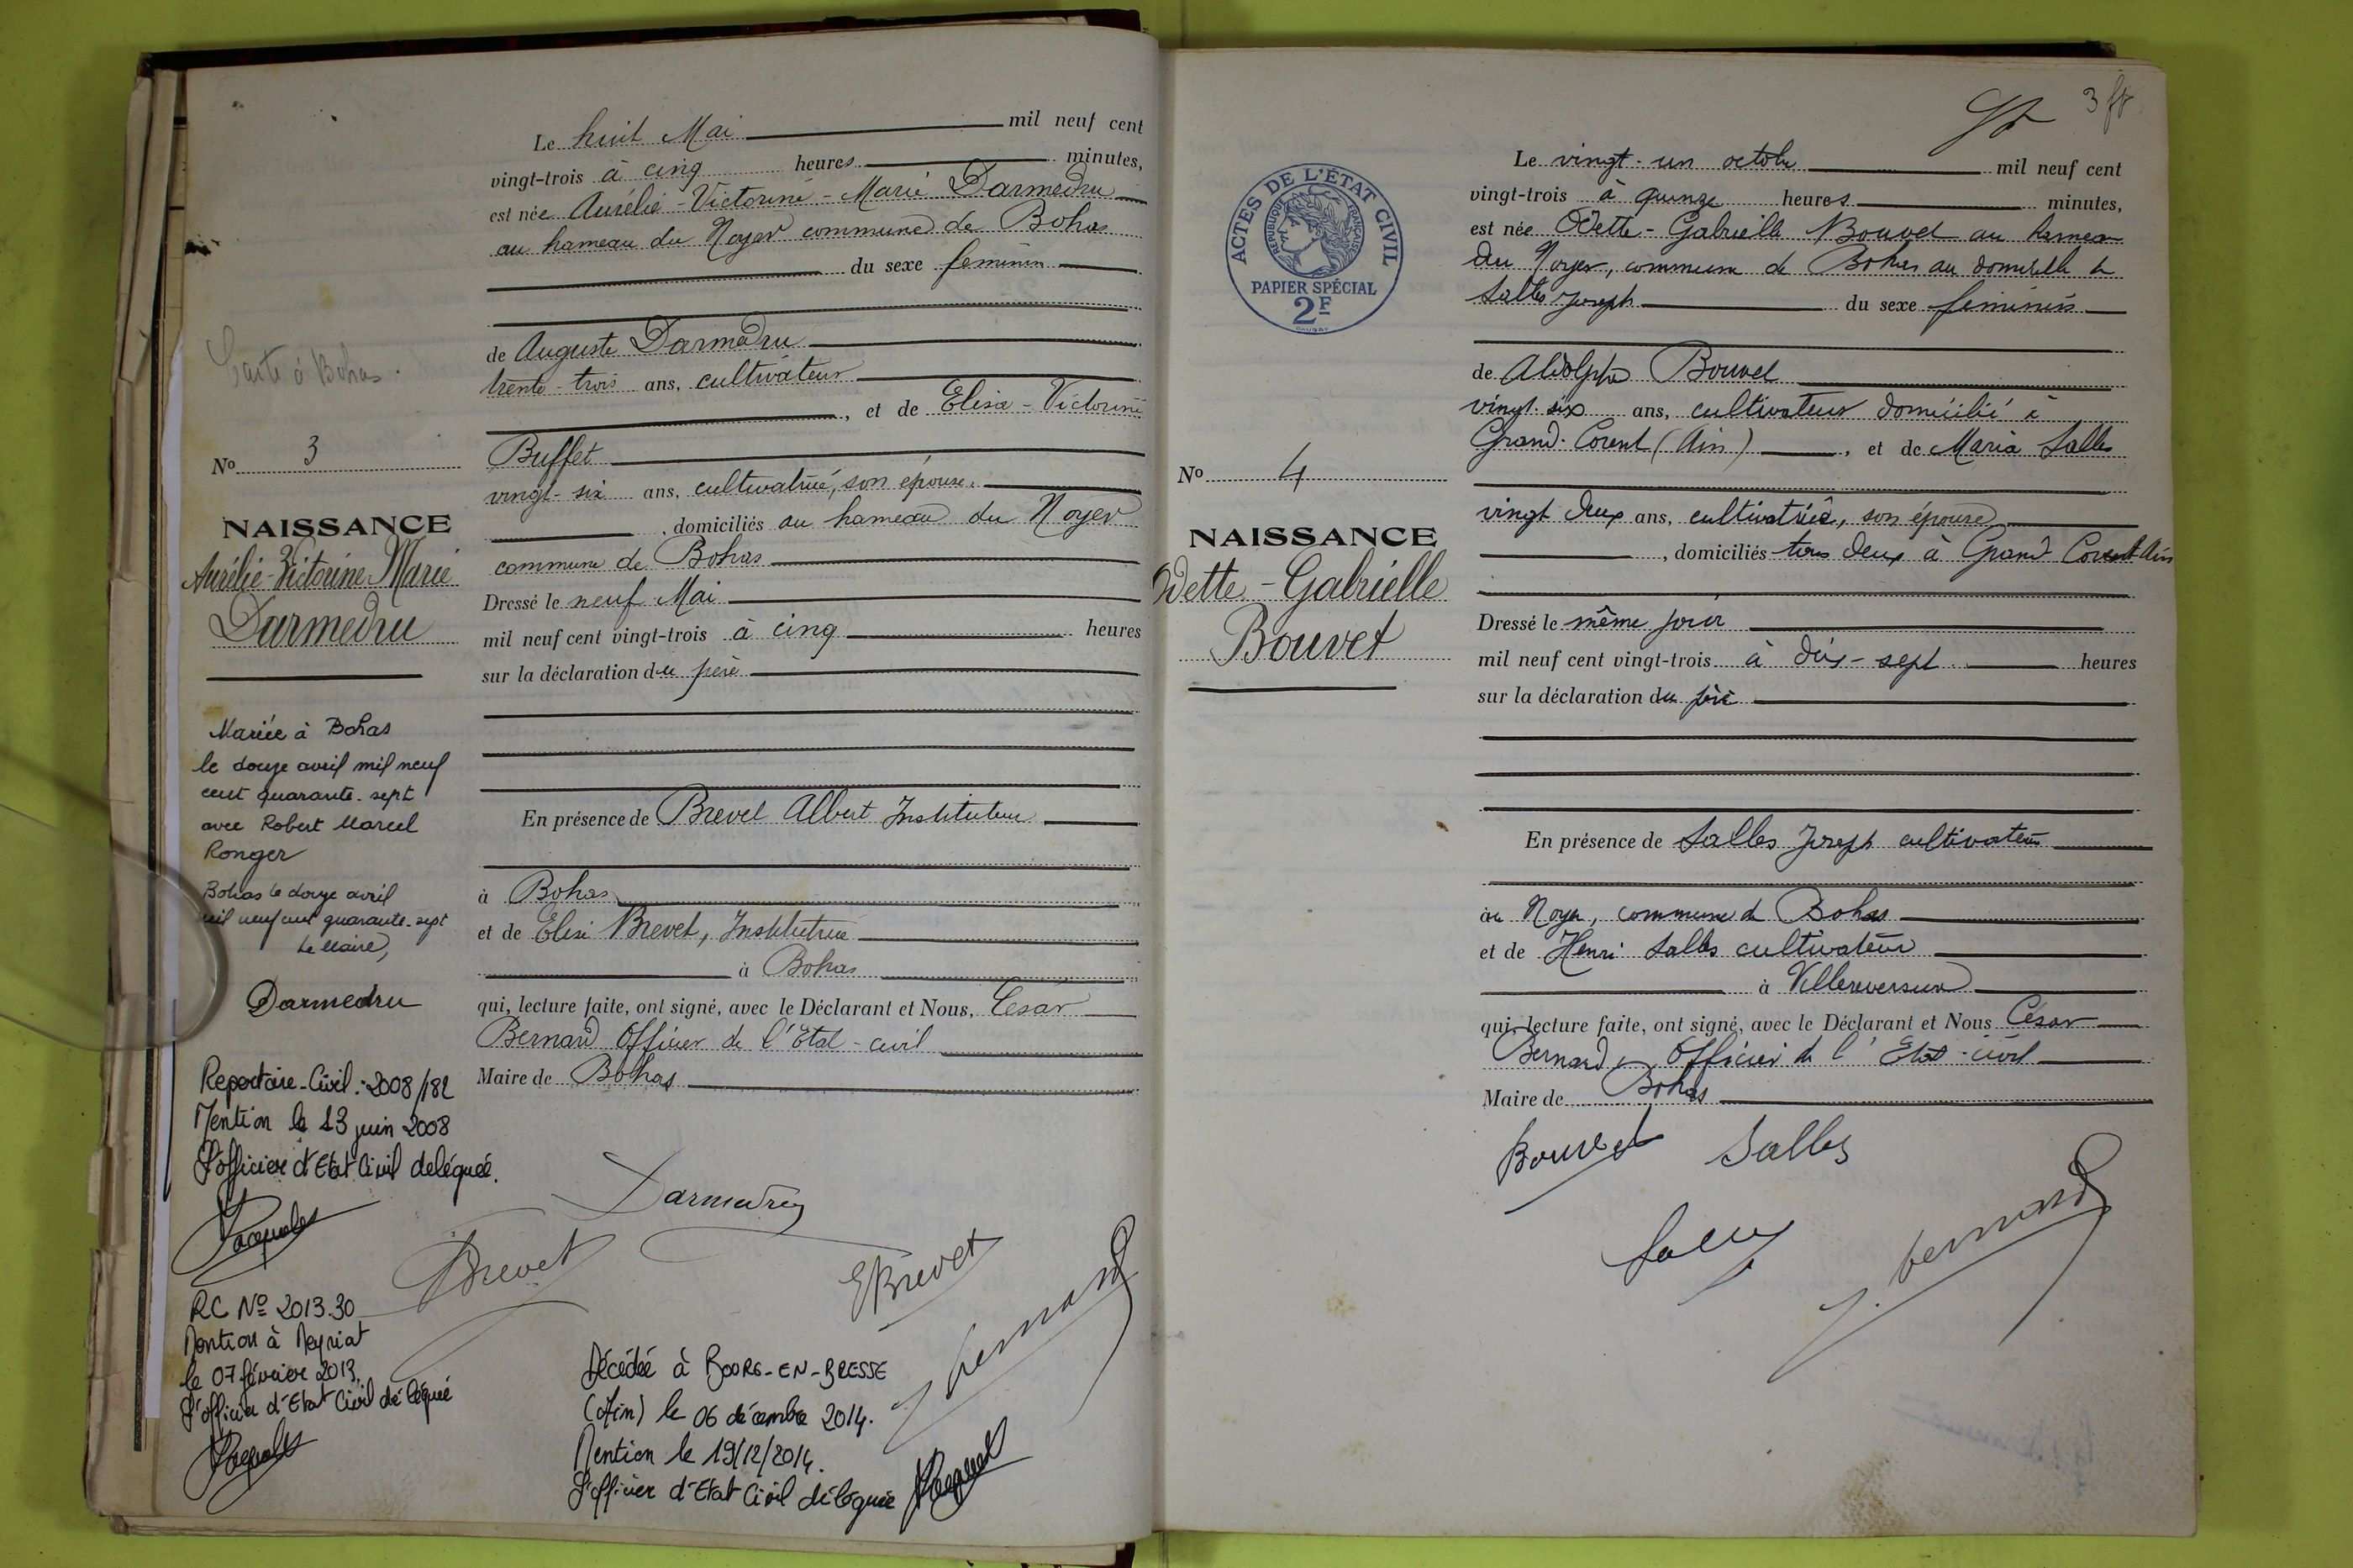 Le huit Mai mil neuf cent
vingt-trois à cinq heures minutes,
est née Aurélie-Victorine-Marie Darmedru
au hameau du Noyer commune de Bohas
du sexe feminin
de Auguste Darmedru
trente-trois ans, cultivateur
, et de Elisa-Victorine
Buffet
vingt-six ans, cultivatrice, son épouse.
, domiciliés au hameau du Noyer
commune de Bohas
Dressé le neuf Mai
mil neuf cent vingt-trois à cinq heures
sur la déclaration du père
En présence de Brevet Albert Instituteur
à Bohas
et de Elise Brevet, Institutrice
à Bohas
qui, lecture faite, ont signé, avec le Déclarant et Nous, César
Bernard Officier de l'Etat-civil
Maire de Bohas
à Bohas.
No 3
NAISSANCE
Aurélie-Victorine Marie
Darmedru
Mariée à Bohas
le douze avril mil neuf
cent quarante-sept
avec Robert Marcel
Ronger
Bohas le douze avril
mil neuf cent quarante-sept
Le Maire,
Darmedru
Repertoire-Civil : 2008/182
Mention le 13 juin 2008
L'officier d'Etat Civil deléguée.
Darmedru
Brevet
E Brevet
J. Bernard
RC No 2013.30
Mention à Meyriat
le 07 février 2013.
L'officier d'Etat Civil délégué
Décédée à BOURG-EN-BRESSE
(Ain) le 06 décembre 2014.
Mention le 19/12/2014.
L'officier d'Etat Civil déléguée
3
ACTES DE L'ÉTAT CIVIL
RÉPUBLIQUE FRANÇAISE
PAPIER SPÉCIAL
2F
No 4
NAISSANCE
Odette-Gabrielle
Bouvet
Le vingt-un octobre mil neuf cent
vingt-trois à quinze heures minutes,
est née Odette-Gabrielle Bouvet au hameau
du Noyer, commune de Bohas au domicile de
Salles Joseph du sexe feminin
de Adolphe Bouvet
vingt-six ans, cultivateur domicilié à
Grand-Corent (Ain), et de Maria Salles
vingt deux ans, cultivatrice, son épouse
, domiciliés tous deux à Grand Corent Ain
Dressé le même jour
mil neuf cent vingt-trois à dix-sept heures
sur la déclaration du père
En présence de Salles Joseph cultivateur
au Noyer, commune de Bohas
et de Henri Salles cultivateur
à Villereversure
qui, lecture faite, ont signé, avec le Déclarant et Nous César
Bernard, Officier de l'Etat-civil
Maire de Bohas
Bouvet Salles
J. Bernard